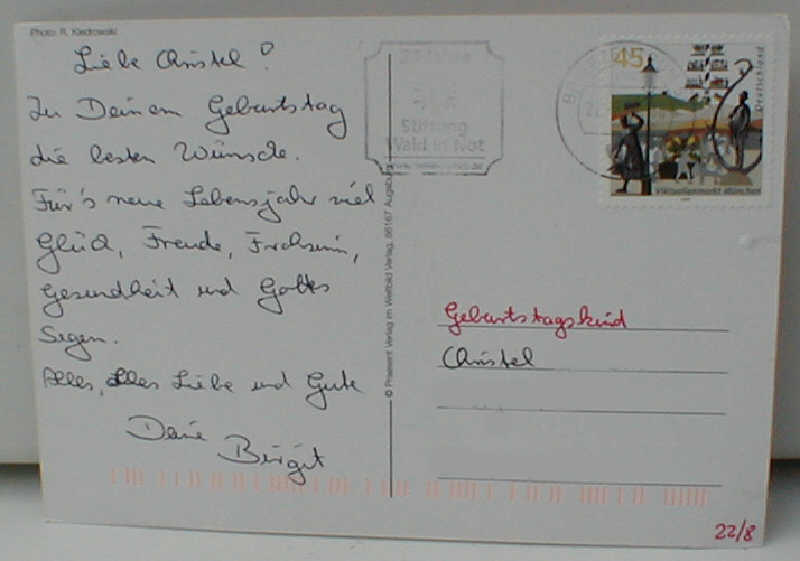 Photo: R. Kiedrowski
Liebe Christel!
Zu Deinem Geburtstag
die besten Wünsche.
Für's neue Lebensjahr viel
Glück, Freude, Frohsinn,
Gesundheit und Gottes
Segen.
Alles, alles Liebe und Gute
Deine
Birgit
© Praesent Verlag im Weltbild Verlag, 86167 Augsburg
Stiftung
Wald in Not
45
Deutschland
Viktualienmarkt München
Geburtstagskind
Christel
22/8